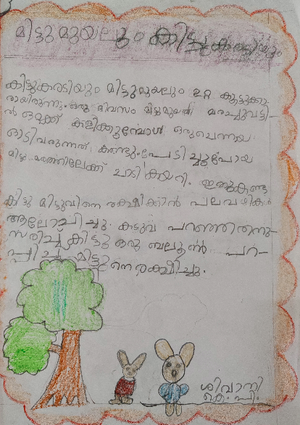 മിട്ടുമുയലും കിട്ടുകരടിയും
കിട്ടുകരടിയും മിട്ടുമുയലും ഉറ്റ കൂട്ടുകാ
രായിരുന്നു. ഒരു ദിവസം മിട്ടുമുയൽ
കളിക്കുമ്പോൾ ഒരു ചെന്നായ
ഓടിവരുന്നത് കണ്ടു. പേടിച്ചുപോയ
മിട്ടു മരത്തിലേക്ക് ചാടികയറി. ഇതുകണ്ട
കിട്ടു മിട്ടുവിനെ രക്ഷിക്കാൻ പല വഴികൾ
ആലോചിച്ചു. കടുവ പറഞ്ഞതനു
സരിച്ച് കിട്ടു ഒരു ബലൂൺ പറ
പ്പിച്ചു മിട്ടുവിനെ രക്ഷിച്ചു.
ശിവാനി